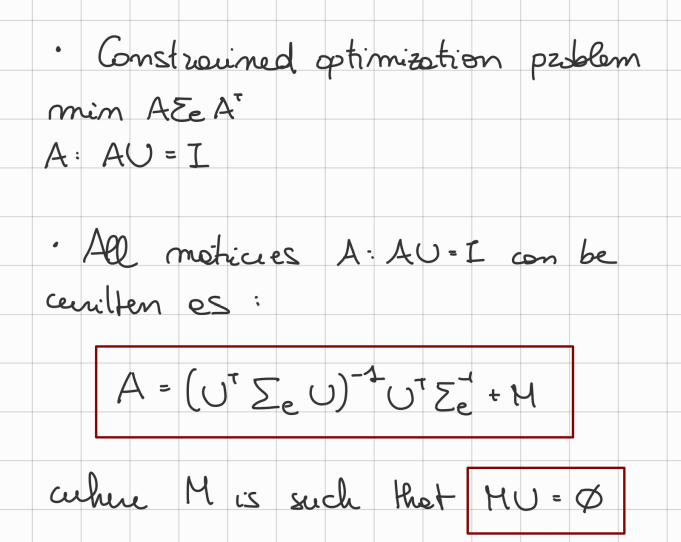 · Constrained optimization problem
min AΣₑAᵀ
A: AU = I
· All matricies A: AU = I can be
written as :
A = (Uᵀ Σₑ U)⁻¹ Uᵀ Σₑ⁻¹ + M
where M is such that MU = ∅